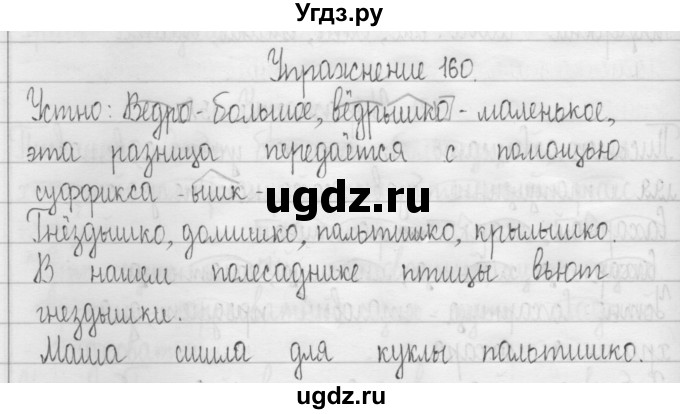 Угдз.ру
Упражнение 160.
Устно: Ведро - большое, вёдрышко - маленькое,
эта разница передаётся с помощью
суффикса -ышк-
ugdz.ru
ugdz.ru
Гнёздышко, домишко, пальтишко, крылышко.
В нашем полесаднике птицы вьют
гнездышки.
Маша сшила для куклы пальтишко.
ugdz.ru